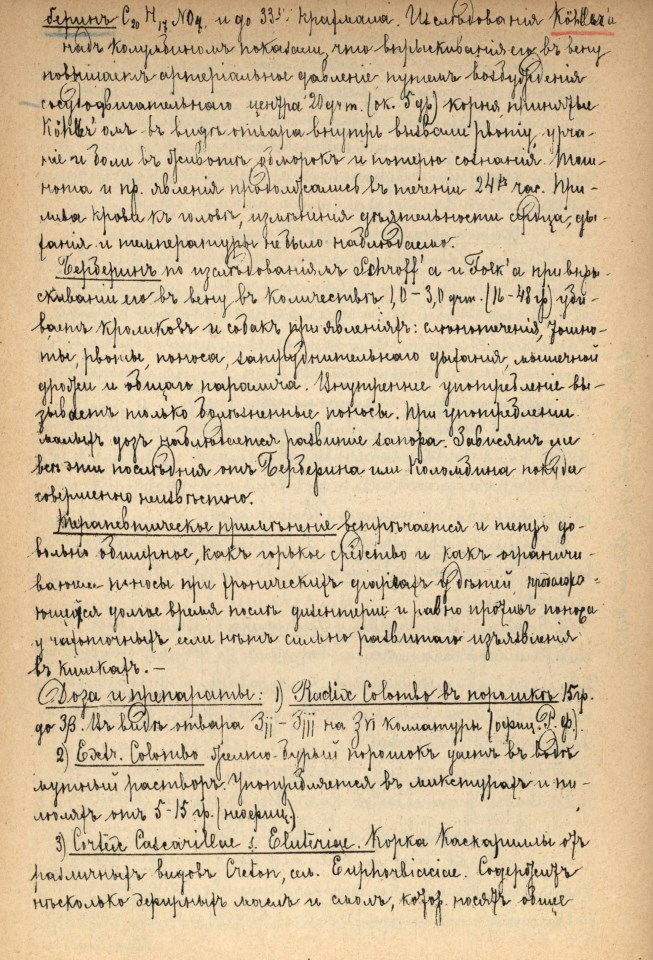 беринъ C20 H17 NO4. и до 33% крахмала. Изслѣдованія Köhler'а
надъ колумбиномъ показали, что впрыскиванія его въ вену
повышаетъ артеріальное давленіе путемъ возбужденія
сосудодвигательнаго центра 20 дгт. (ок. 5 др) корня, принятые
Köhler'омъ въ видѣ отвара внутрь вызвали рвоту, урча-
ніе и боли въ животѣ, обморокъ и потерю сознанія. Тош-
нота и пр. явленія продолжались въ теченіи 24хъ час. При-
лива крови къ головѣ, измѣненія дѣятельности сердца, ды-
ханія и температуры не было наблюдаемо.
Берберинъ по изслѣдованіямъ Schroff'а и Folk'а при впры-
скиваніи его въ вену въ количествѣ 1,0 – 3,0 дгт. (16 – 48 гр) уби-
ваетъ кроликовъ и собакъ при явленіяхъ: слюнотеченія, тошно-
ты, рвоты, поноса, затруднительнаго дыханія, мышечной
дрожи и общаго паралича. Внутреннее употребленіе вы-
зываетъ только болѣзненные поносы. При употребленіи
малыхъ дозъ наблюдается развитіе запора. Зависятъ ли
всѣ эти послѣднія отъ Берберина или Коломбина покуда
совершенно неизвѣстно.
Терапевтическое примѣненіе встрѣчается и теперь до-
вольно обширное, какъ горькое средство и какъ ограничи-
вающее поносы при хроническихъ діареяхъ у дѣтей, продолжа-
ющейся долгое время послѣ дизентеріи и равно противъ поноса
у чахоточныхъ, если нѣтъ сильно развитаго изъязвленія
въ кишкахъ. —
Доза и препараты: 1) Radix Colombo въ порошкѣ 15 гр.
до ʒβ. Въ видѣ отвара ʒij – ʒiij на ℥vi коллатуры (офиц. Р. Ф).
2) Extr. Colombo желто-бурый порошокъ даетъ въ водѣ
мутный растворъ. Употребляется въ микстурахъ и пи-
люляхъ отъ 5-15 гр. (неофиц.)
3) Cortex Cascarillae s. Eluteriae. Корка Каскариллы отъ
различныхъ видовъ Croton, сем. Euphorbiaciae. Содержитъ
нѣсколько эфирныхъ маслъ и смолъ, котор. носятъ общее